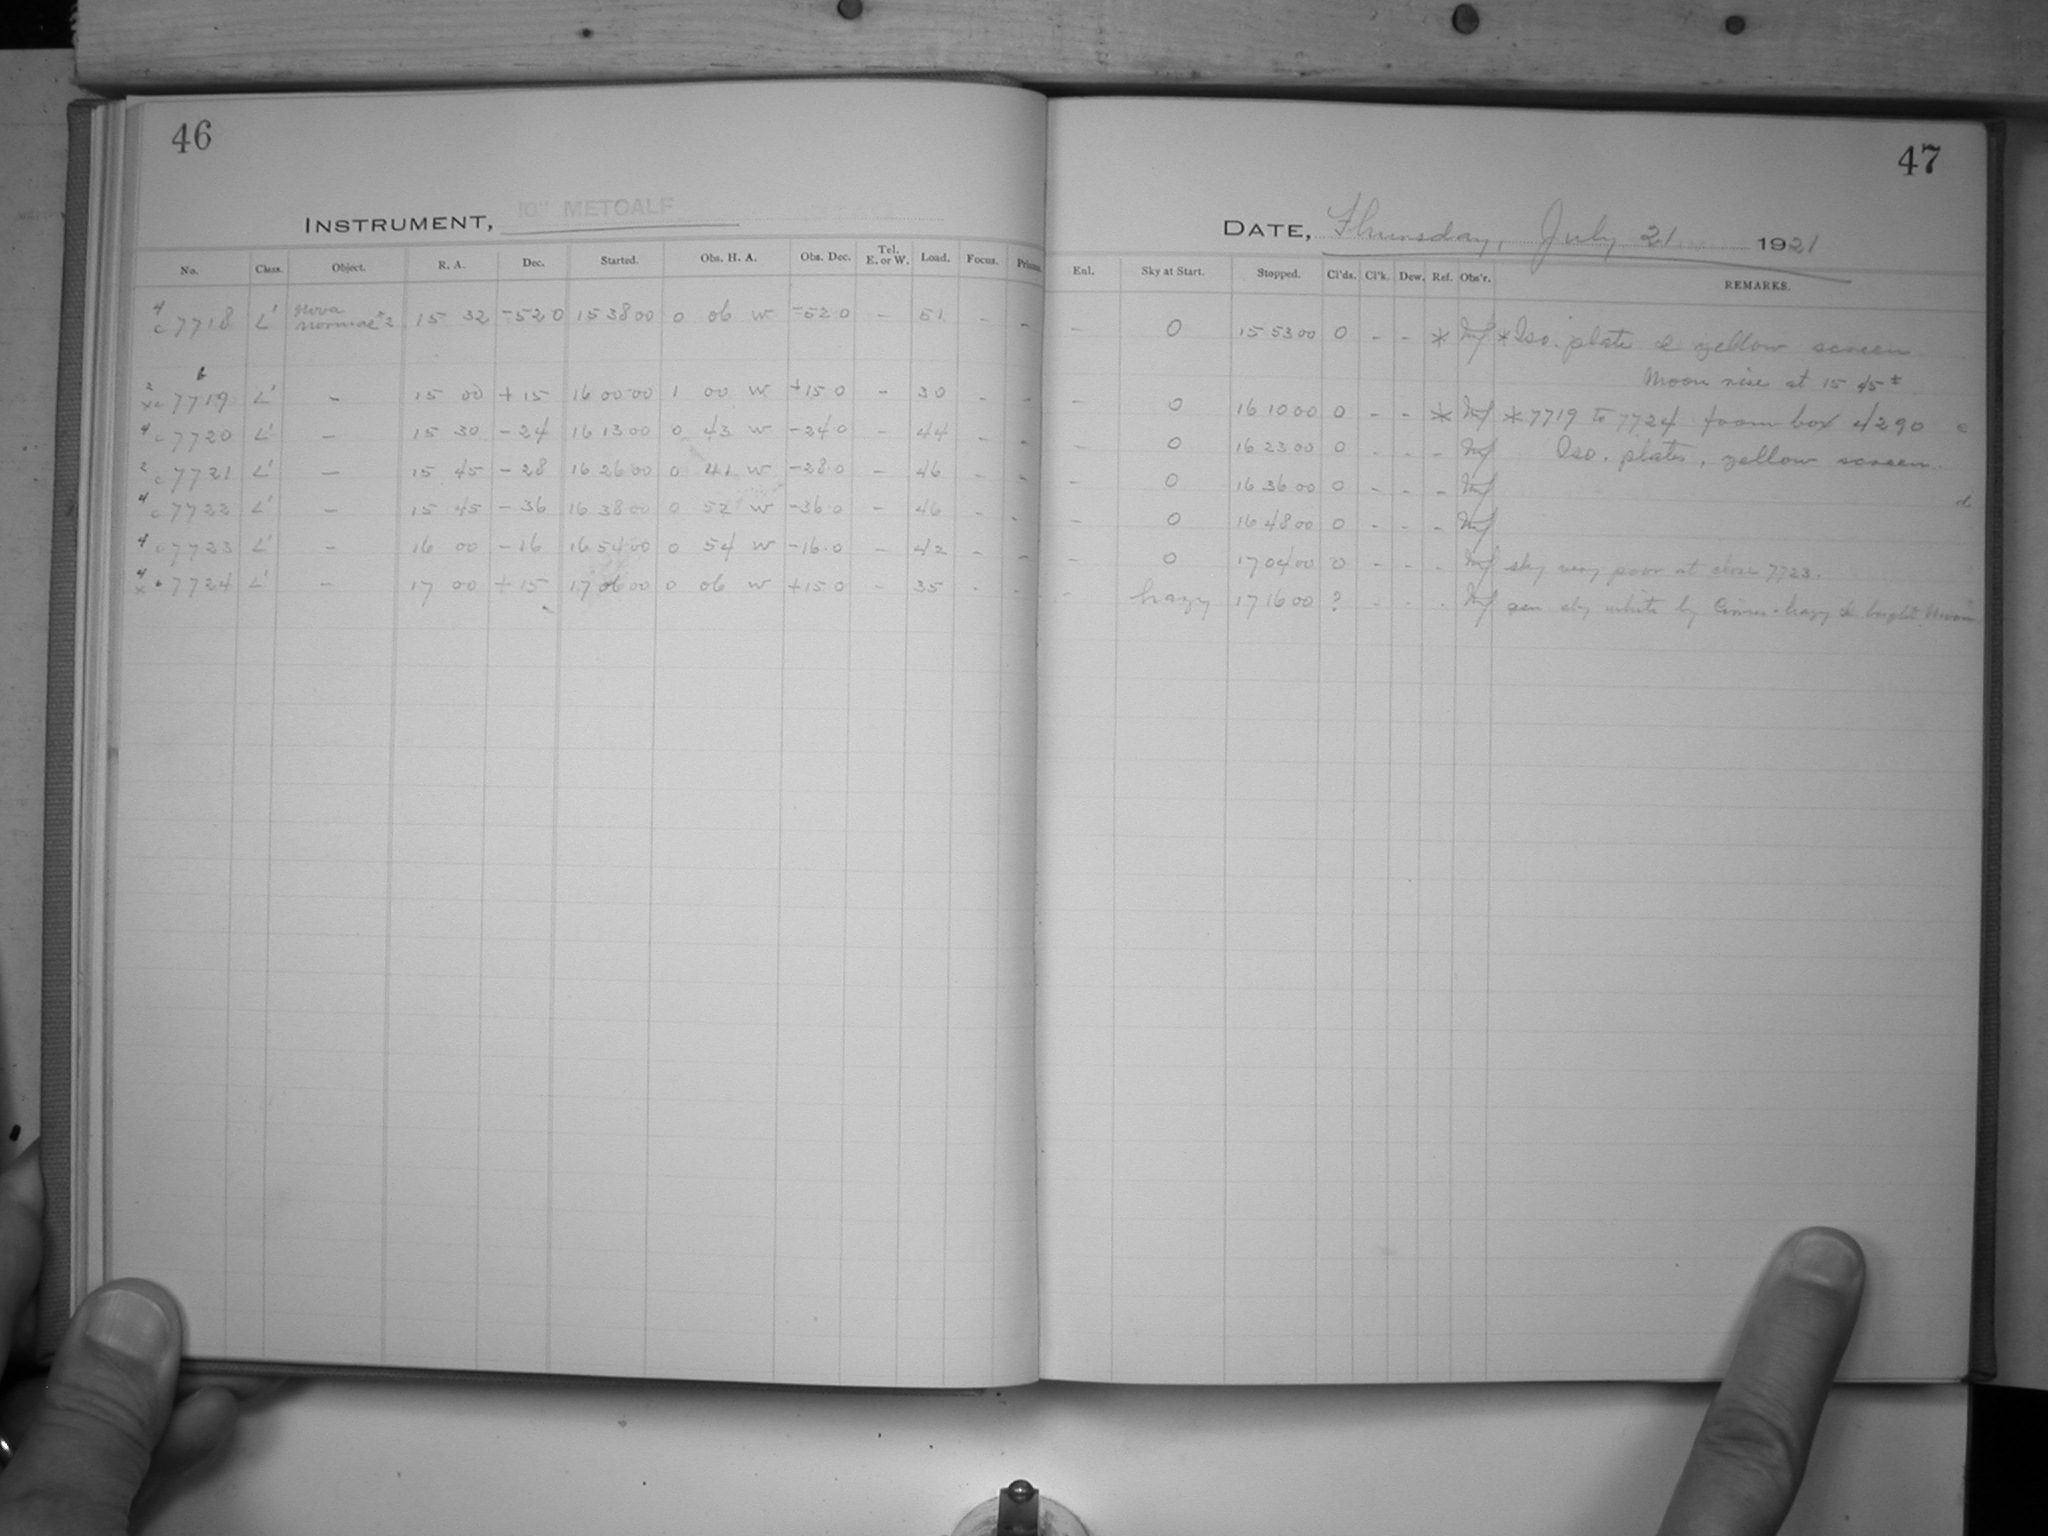 46
INSTRUMENT, 10" METCALF
No. Class. Object. R. A. Dec. Started. Obs. H. A. Obs. Dec. Tel. E. or W. Load. Focus. Prisms.
4 c 7718 L' Nova Normae #2 15 32 -52 0 15 38 00 0 06 W -52 0 - 51 - -
2 x c 7719 L' - 15 00 +15 16 00 00 1 00 W +15 0 - 30 - -
4 c 7720 L' - 15 30 -24 16 13 00 0 43 W -24 0 - 44 - -
2 c 7721 L' - 15 45 -28 16 26 00 0 41 W -28 0 - 46 - -
4 c 7722 L' - 15 45 -36 16 38 00 0 52 W -36 0 - 46 - -
4 c 7723 L' - 16 00 -16 16 54 00 0 54 W -16 0 - 42 - -
4 x c 7724 L' - 17 00 +15 17 06 00 0 06 W +15 0 - 35 - -
47
DATE, Thursday, July 21 1921
Enl. Sky at Start. Stopped. Cl'ds. Cl'k. Dew. Ref. Obs'r. REMARKS.
- 0 15 53 00 0 - - * * Iso. plate & yellow screen
Moon rise at 15 45 ±
- 0 16 10 00 0 - - * * 7719 to 7724 from box 4290 c
- 0 16 23 00 0 - - - Iso. plates, yellow screen.
- 0 16 36 00 0 - - -
d
- 0 16 48 00 0 - - -
- 0 17 04 00 0 - - - sky very poor at close 7723.
- hazy 17 16 00 ? - - - sky white by Cirrus-hazy & bright Moon